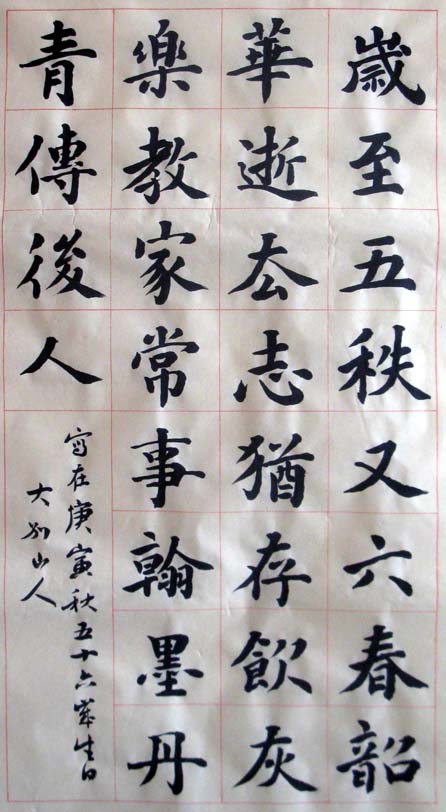 歲至五秩又六春韶
華逝厺志猶存飲灰
樂教家常事翰墨丹
青傳後人
写在庚寅秋五十六岁生日
大别山人